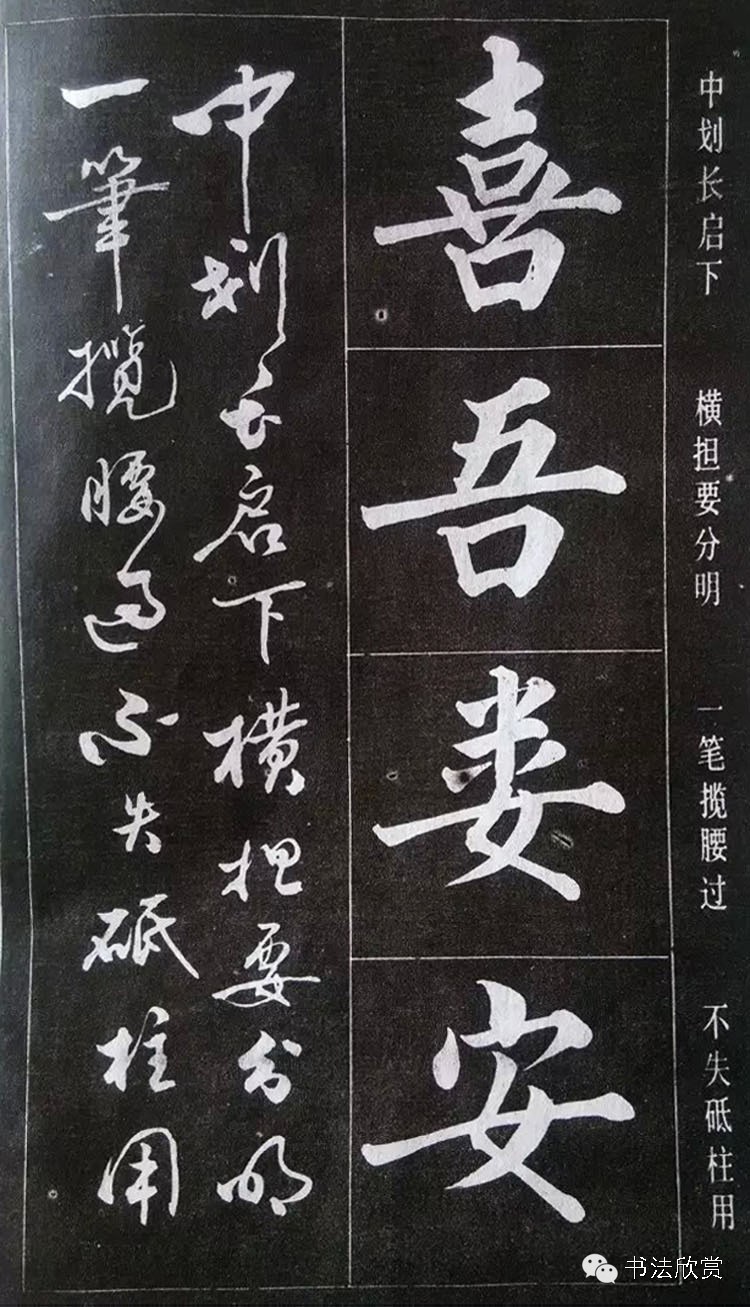 中划长启下　横担要分明　一笔揽腰过　不失砥柱用
喜吾娄安
中划长启下横担要分明
一筆揽腰過不失砥柱用
书法欣赏